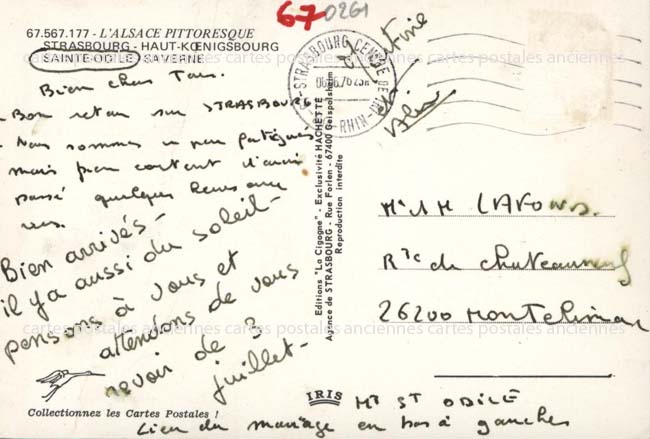 67 0261
67.567.177 - L'ALSACE PITTORESQUE
STRASBOURG - HAUT-KŒNIGSBOURG
SAINTE-ODILE - SAVERNE
Bien chers Tous.
Bon retour sur STRASBOURG
Nous sommes un peu fatigués
mais content d'avoir
passé quelques heures avec
vous.
Bien arrivés-
il y a aussi du soleil-
pensons à vous et
attendons de vous
revoir le 3
juillet-
Collectionnez les Cartes Postales !
STRASBOURG CENTRE DE TRI
BAS-RHIN
Editions "La Cigogne" - Exclusivité HACHETTE
Agence de STRASBOURG - Rue Forlen - 67400 Geispolsheim
Reproduction interdite
IRIS
Mr & M LAFOND.
Rte de Chateauneuf
26200 Montelimar
Mt ST ODILE
Lieu du mariage en bas à gauche
cartes postales anciennes cartes postales anciennes cartes postales anciennes
cartes postales anciennes cartes postales anciennes cartes postales anciennes